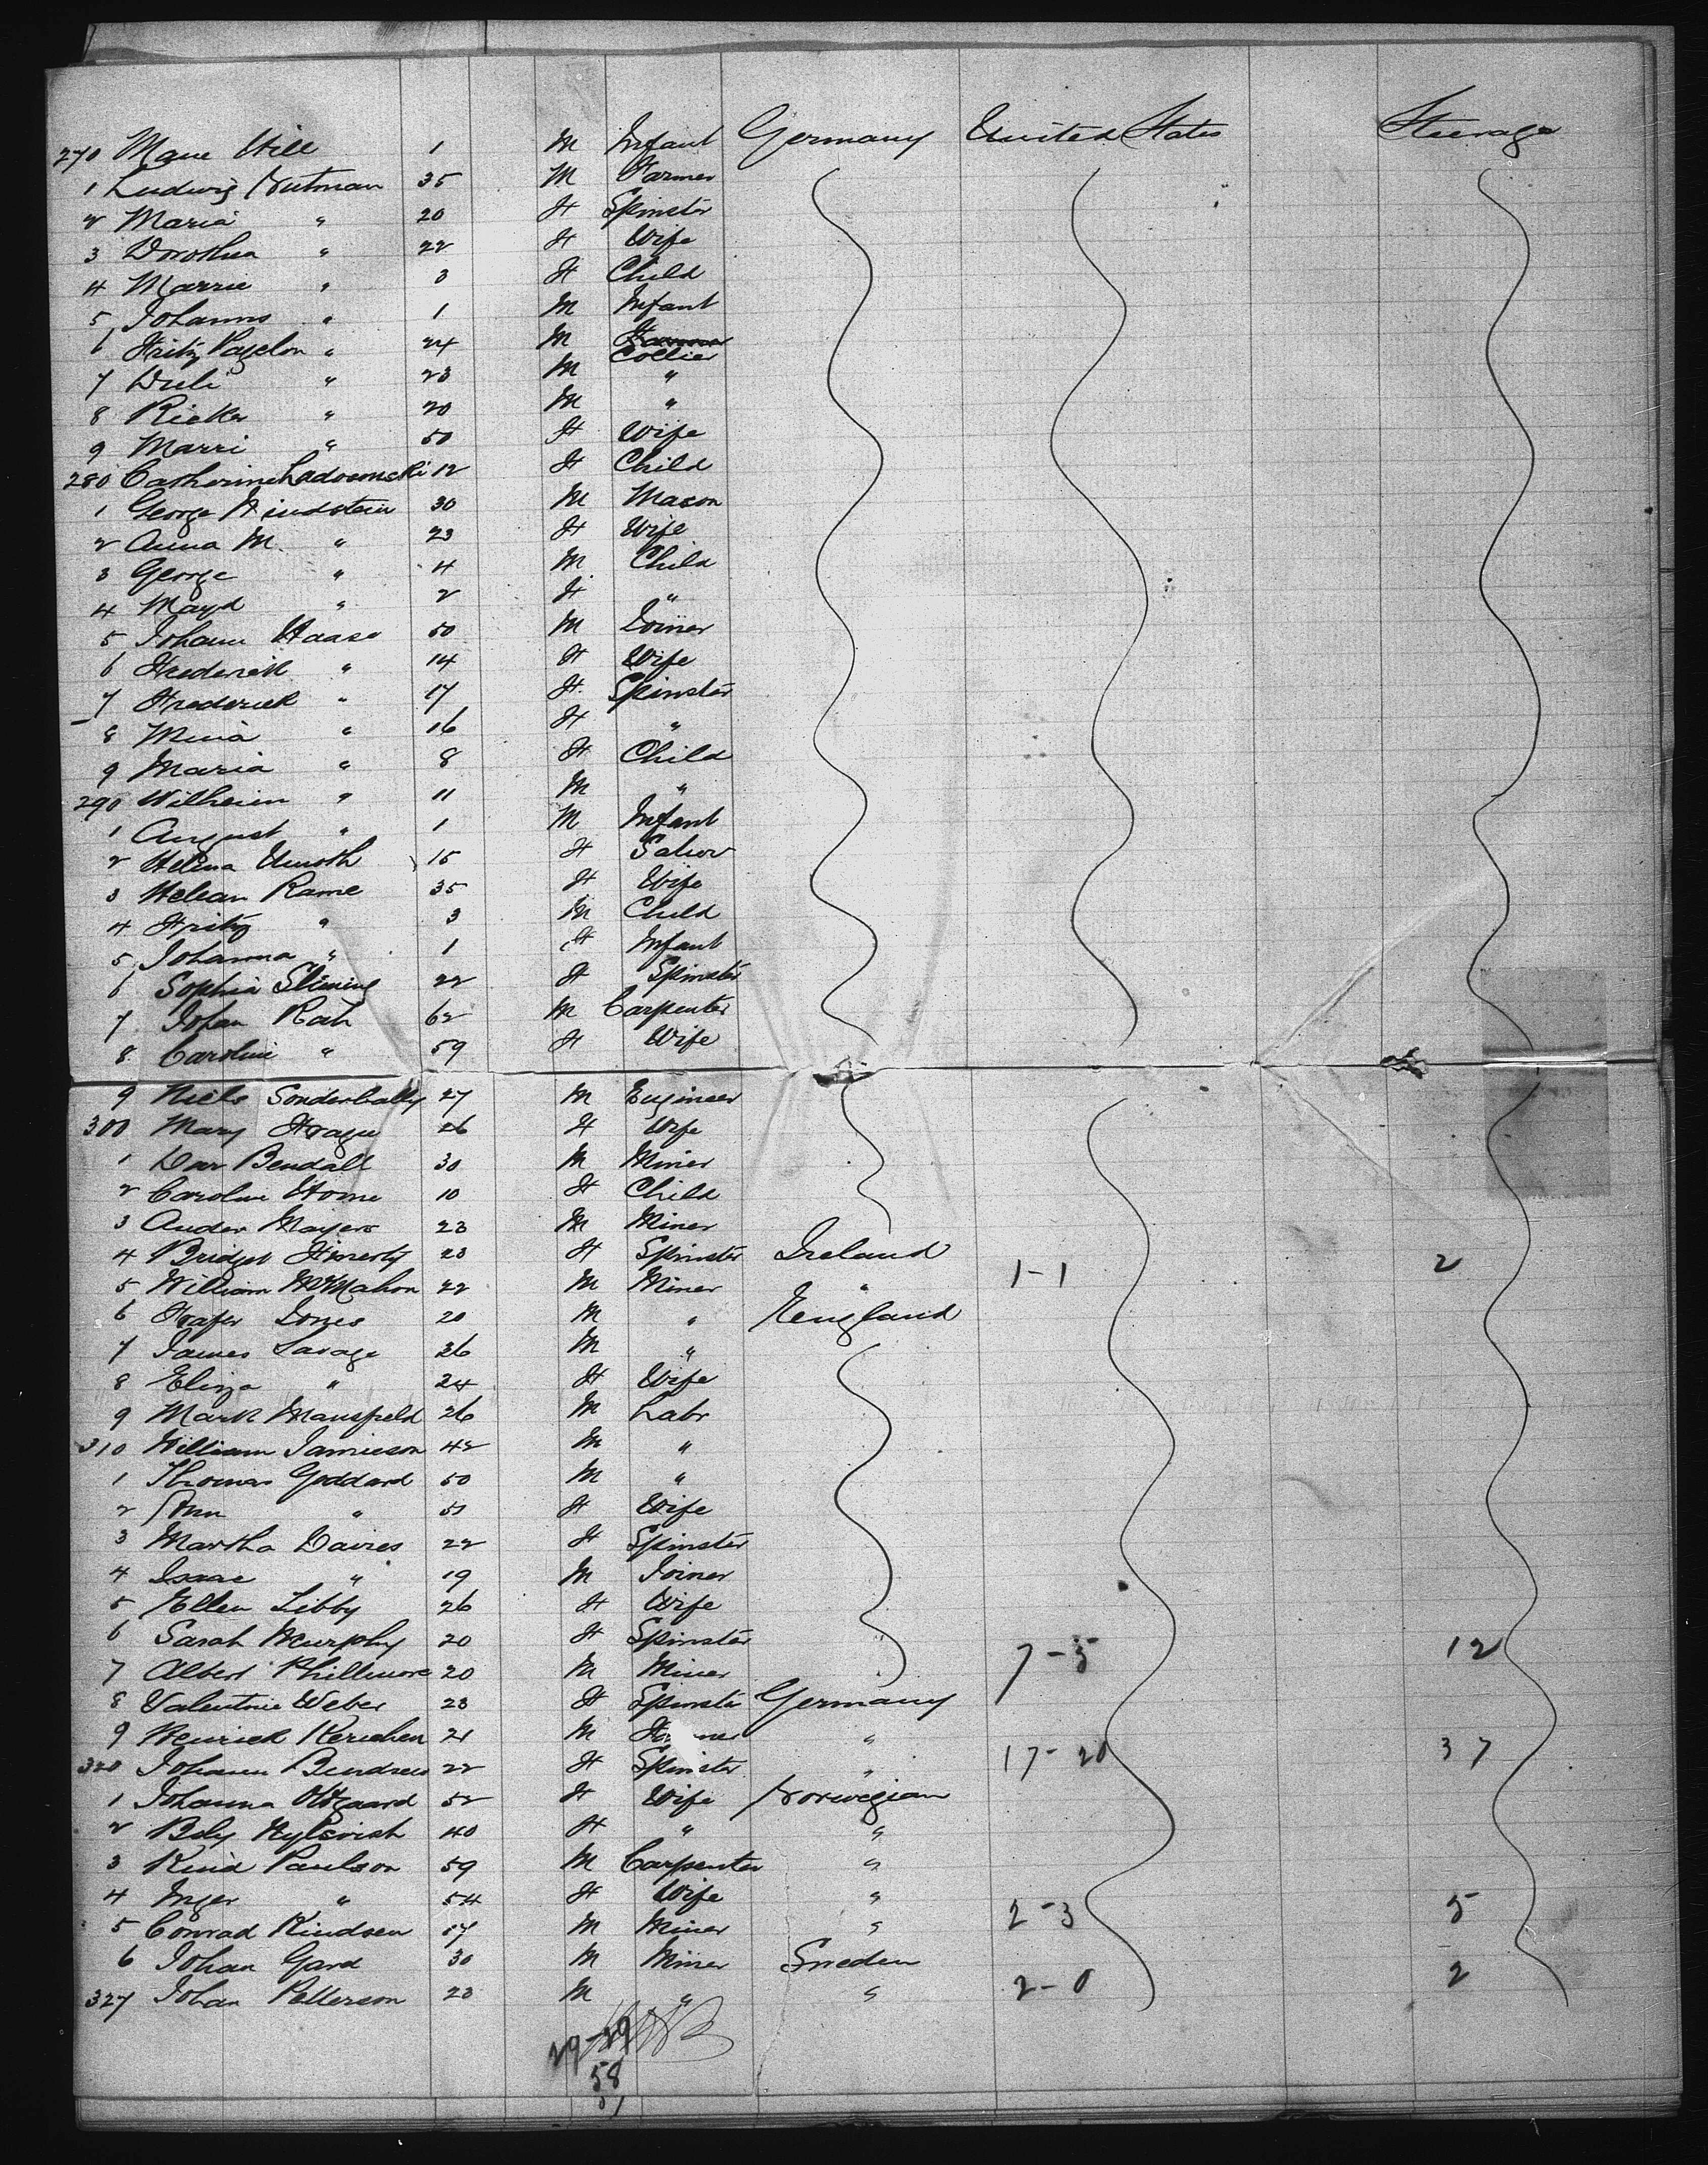 270 Marie Hill 1 M Infant Germany United States Steerage
1 Ludwig Hutman 35 M Farmer
2 Maria " 20 F Spinster
3 Dorothea " 22 F Wife
4 Marrie " 3 F Child
5 Johanns " 1 M Infant
6 Fritz Pagelon " 24 M Collier
7 " 23 M "
8 Rieka " 20 M "
9 Marri " 50 F Wife
280 Catherine Ladoomski 12 F Child
1 George Windstein 30 M Mason
2 Anna M. " 23 F Wife
3 George " 4 M Child
4 Mayd " 2 F "
5 Johann Haase 50 M Joiner
6 Frederick " 14 F Wife
7 Frederick " 17 F Spinster
8 Mina " 16 F "
9 Maria " 8 F Child
290 Wilheim " 11 M "
1 August " 1 M Infant
2 Helena 15 F
3 Helean Rame 35 F Wife
4 Fritz " 3 M Child
5 Johanna " 1 F Infant
6 Sophia 22 F Spinster
7 Johan Rath 62 M Carpenter
8 Caroline " 59 F Wife
9 Niels Sonderbally 27 M Engineer
300 Mary 26 F Wife
1 Dar Bendall 30 M Miner
2 Caroline Home 10 F Child
3 Ander Mayers 23 M Miner
4 Bridget 23 F Spinster Ireland
5 William McMahon 22 M Miner " 1-1 2
6 Jones 20 M " England
7 James Savage 26 M "
8 Eliza " 24 F Wife
9 Mark Mansfield 26 M Labr
310 William Jamieson 42 M "
1 Thomas Goddard 50 M "
2 Ann " 51 F Wife
3 Martha Davies 22 F Spinster
4 Isaac " 19 M Joiner
5 Ellen Libby 26 F Wife
6 Sarah Murphy 20 F Spinster
7 Albert Phillmore 20 M Miner 7-5 12
8 Valentine Weber 23 F Spinster Germany
9 Heinrick Kerichen 21 M "
320 Johann 22 F Spinster " 17-20 37
1 Johanna Oldgaard 52 F Wife Norwegian
2 40 F " "
3 Knud Paulson 59 M Carpenter "
4 Inger " 54 F Wife "
5 Conrad Kindsen 17 M Miner " 2-3 5
6 Johan Gard 30 M Miner Sweden
327 Johan Petterson 23 M " " 2-0 2
29-29
58